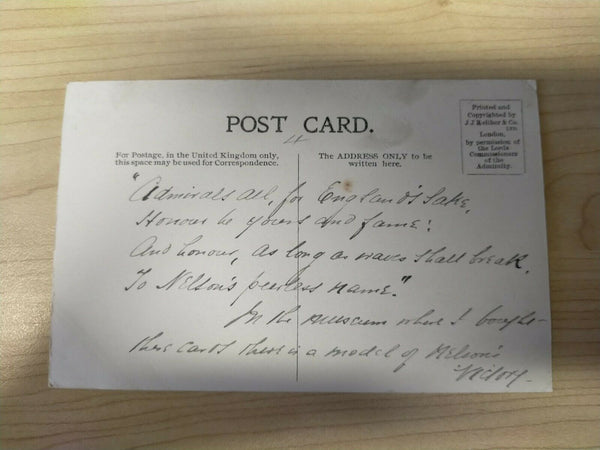 POST CARD.
4
For Postage, in the United Kingdom only,
this space may be used for Correspondence.
The ADDRESS ONLY to be
written here.
Printed and
Copyrighted by
J. J. Keliher & Co.
LTD.
London,
by permission of
the Lords
Commissioners
of the
Admiralty.
"Admirals all, for England's sake,
Honour be yours and fame!
And honour, as long as waves shall break,
To Nelson's peerless name."
In the museum where I bought
these cards there is a model of Nelson's
Victory –